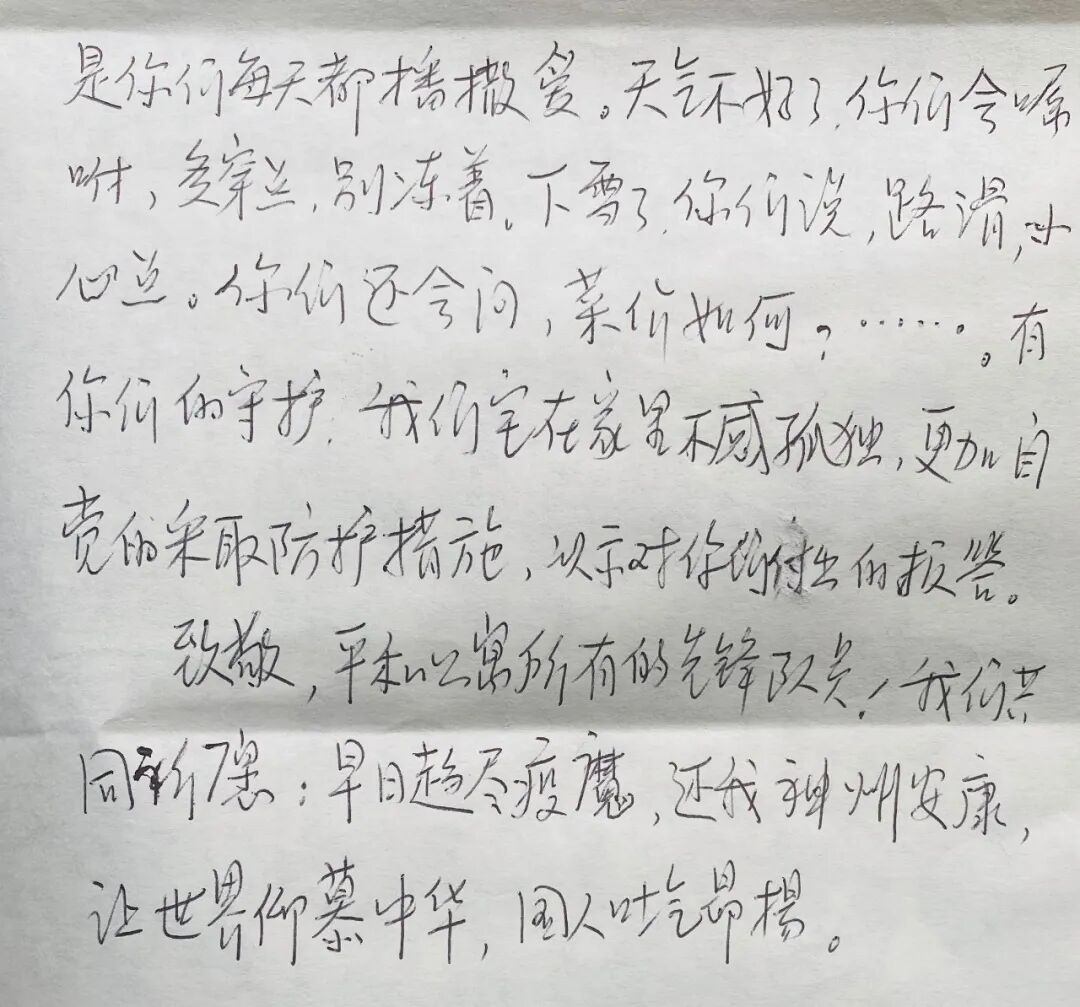 是你们每天都播撒爱。天气不好了,你们会嘱
咐,多穿点,别冻着。下雪了,你们说,路滑,小
心点。你们还会问,菜价如何?……。有
你们的守护,我们宅在家里不感孤独,更加自
觉的采取防护措施,以示对你们付出的报答。
致敬,平和公寓所有的先锋队员!我们共
同祈愿:早日趋尽疫魔,还我神州安康,
让世界仰慕中华,国人吐气昂揚。